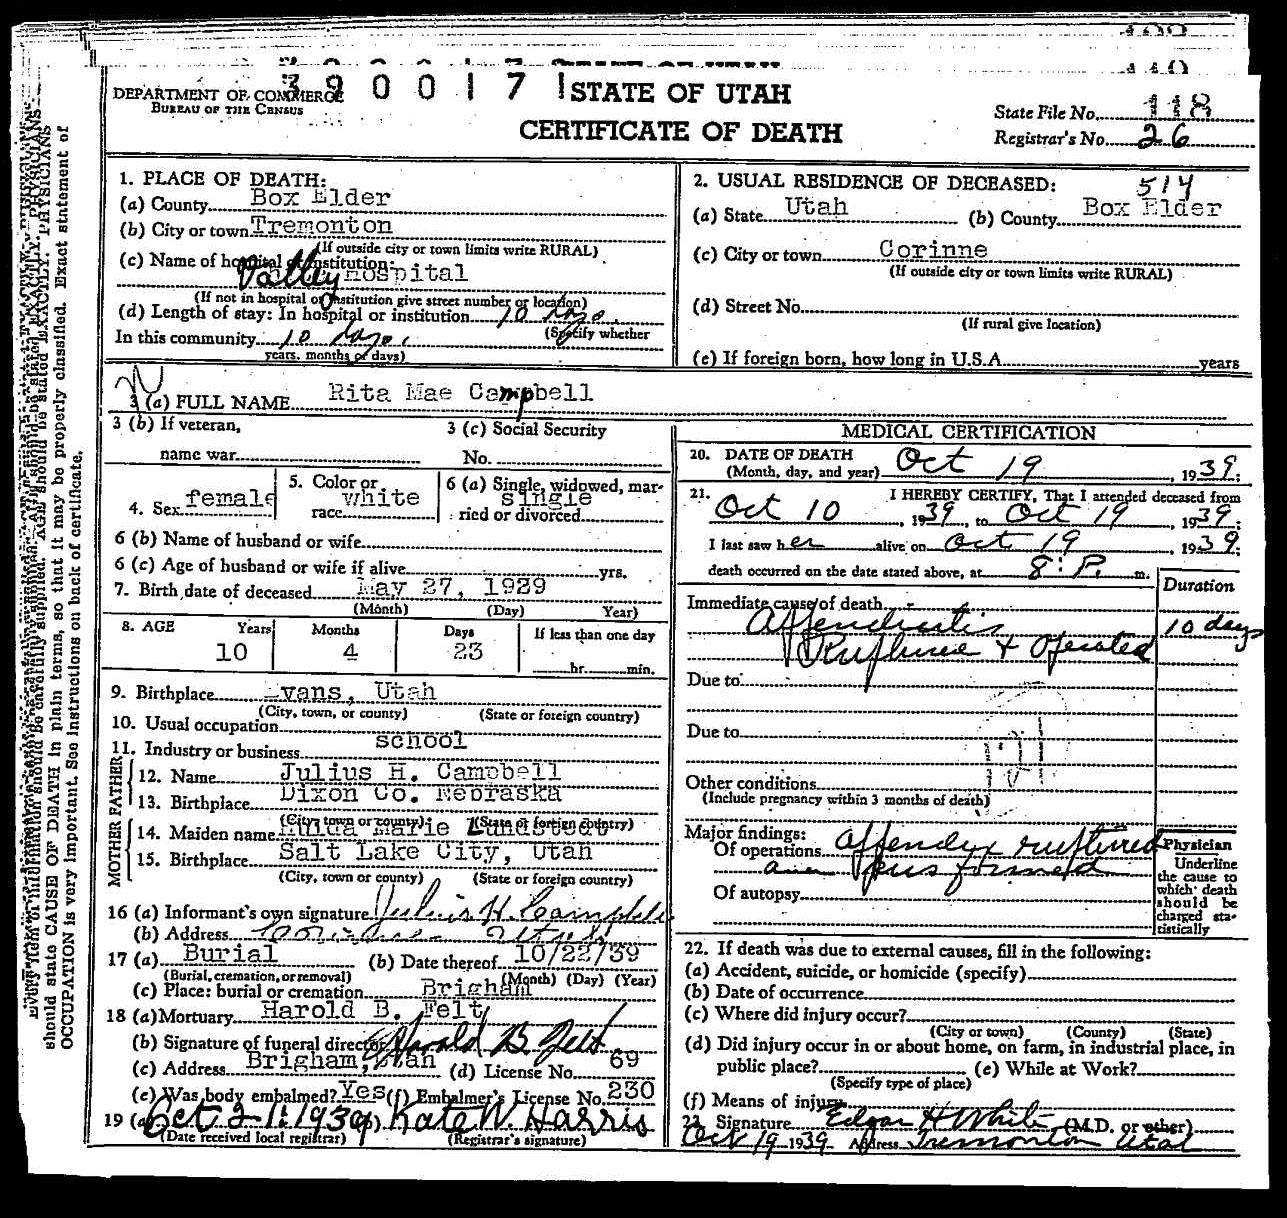 3900171
DEPARTMENT OF COMMERCE
BUREAU OF THE CENSUS
STATE OF UTAH
CERTIFICATE OF DEATH
State File No. 118
Registrar's No. 26
1. PLACE OF DEATH:
(a) County Box Elder
(b) City or town Tremonton
(If outside city or town limits write RURAL)
(c) Name of hospital or institution:
Valley Hospital
(If not in hospital or institution give street number or location)
(d) Length of stay: In hospital or institution 10 days.
(Specify whether
In this community 10 days.
years, months or days)
2. USUAL RESIDENCE OF DECEASED: 514
(a) State Utah (b) County Box Elder
(c) City or town Corinne
(If outside city or town limits write RURAL)
(d) Street No.
(If rural give location)
(e) If foreign born, how long in U.S.A. years
3 (a) FULL NAME Rita Mae Campbell
3 (b) If veteran,
name war
3 (c) Social Security
No.
4. Sex female
5. Color or
race white
6 (a) Single, widowed, mar-
ried or divorced single
6 (b) Name of husband or wife
6 (c) Age of husband or wife if alive yrs.
7. Birth date of deceased May 27, 1929
(Month) (Day) Year)
8. AGE Years Months Days If less than one day
10 4 23 hr. min.
9. Birthplace Evans, Utah
(City, town, or county) (State or foreign country)
10. Usual occupation
11. Industry or business school
FATHER
12. Name Julius H. Campbell
13. Birthplace Dixon Co. Nebraska
(City, town or county) (State or foreign country)
MOTHER
14. Maiden name Hulda Marie Lundstedt
15. Birthplace Salt Lake City, Utah
(City, town or county) (State or foreign country)
16 (a) Informant's own signature Julius H. Campbell
(b) Address Corinne Utah
17 (a) Burial (b) Date thereof 10/22/39
(Burial, cremation, or removal) (Month) (Day) (Year)
(c) Place: burial or cremation Brigham
18 (a) Mortuary Harold B. Felt
(b) Signature of funeral director Harold B. Felt
(c) Address Brigham, Utah (d) License No. 69
(e) Was body embalmed? Yes (f) Embalmer's License No. 230
19 (a) Oct 21: 1939 Kate W. Harris
(Date received local registrar) (Registrar's signature)
MEDICAL CERTIFICATION
20. DATE OF DEATH
(Month, day, and year) Oct 19, 1939;
21. I HEREBY CERTIFY, That I attended deceased from
Oct 10, 1939, to Oct 19, 1939;
I last saw her alive on Oct 19, 1939;
death occurred on the date stated above, at 8: P. m.
Duration
Immediate cause of death
Appendicitis 10 days
Rupture & Operated
Due to
Due to
121
Other conditions
(Include pregnancy within 3 months of death)
Major findings:
Of operations Appendix ruptured
pus formed
Of autopsy
Physician
Underline
the cause to
which death
should be
charged sta-
tistically
22. If death was due to external causes, fill in the following:
(a) Accident, suicide, or homicide (specify)
(b) Date of occurrence
(c) Where did injury occur?
(City or town) (County) (State)
(d) Did injury occur in or about home, on farm, in industrial place, in
public place? (e) While at Work?
(Specify type of place)
(f) Means of injury
23. Signature Edgar H White (M.D. or other)
Oct 19 1939 Address Tremonton Utah
should state CAUSE OF DEATH in plain terms, so that it may be properly classified. Exact statement of
OCCUPATION is very important. See instructions on back of certificate.